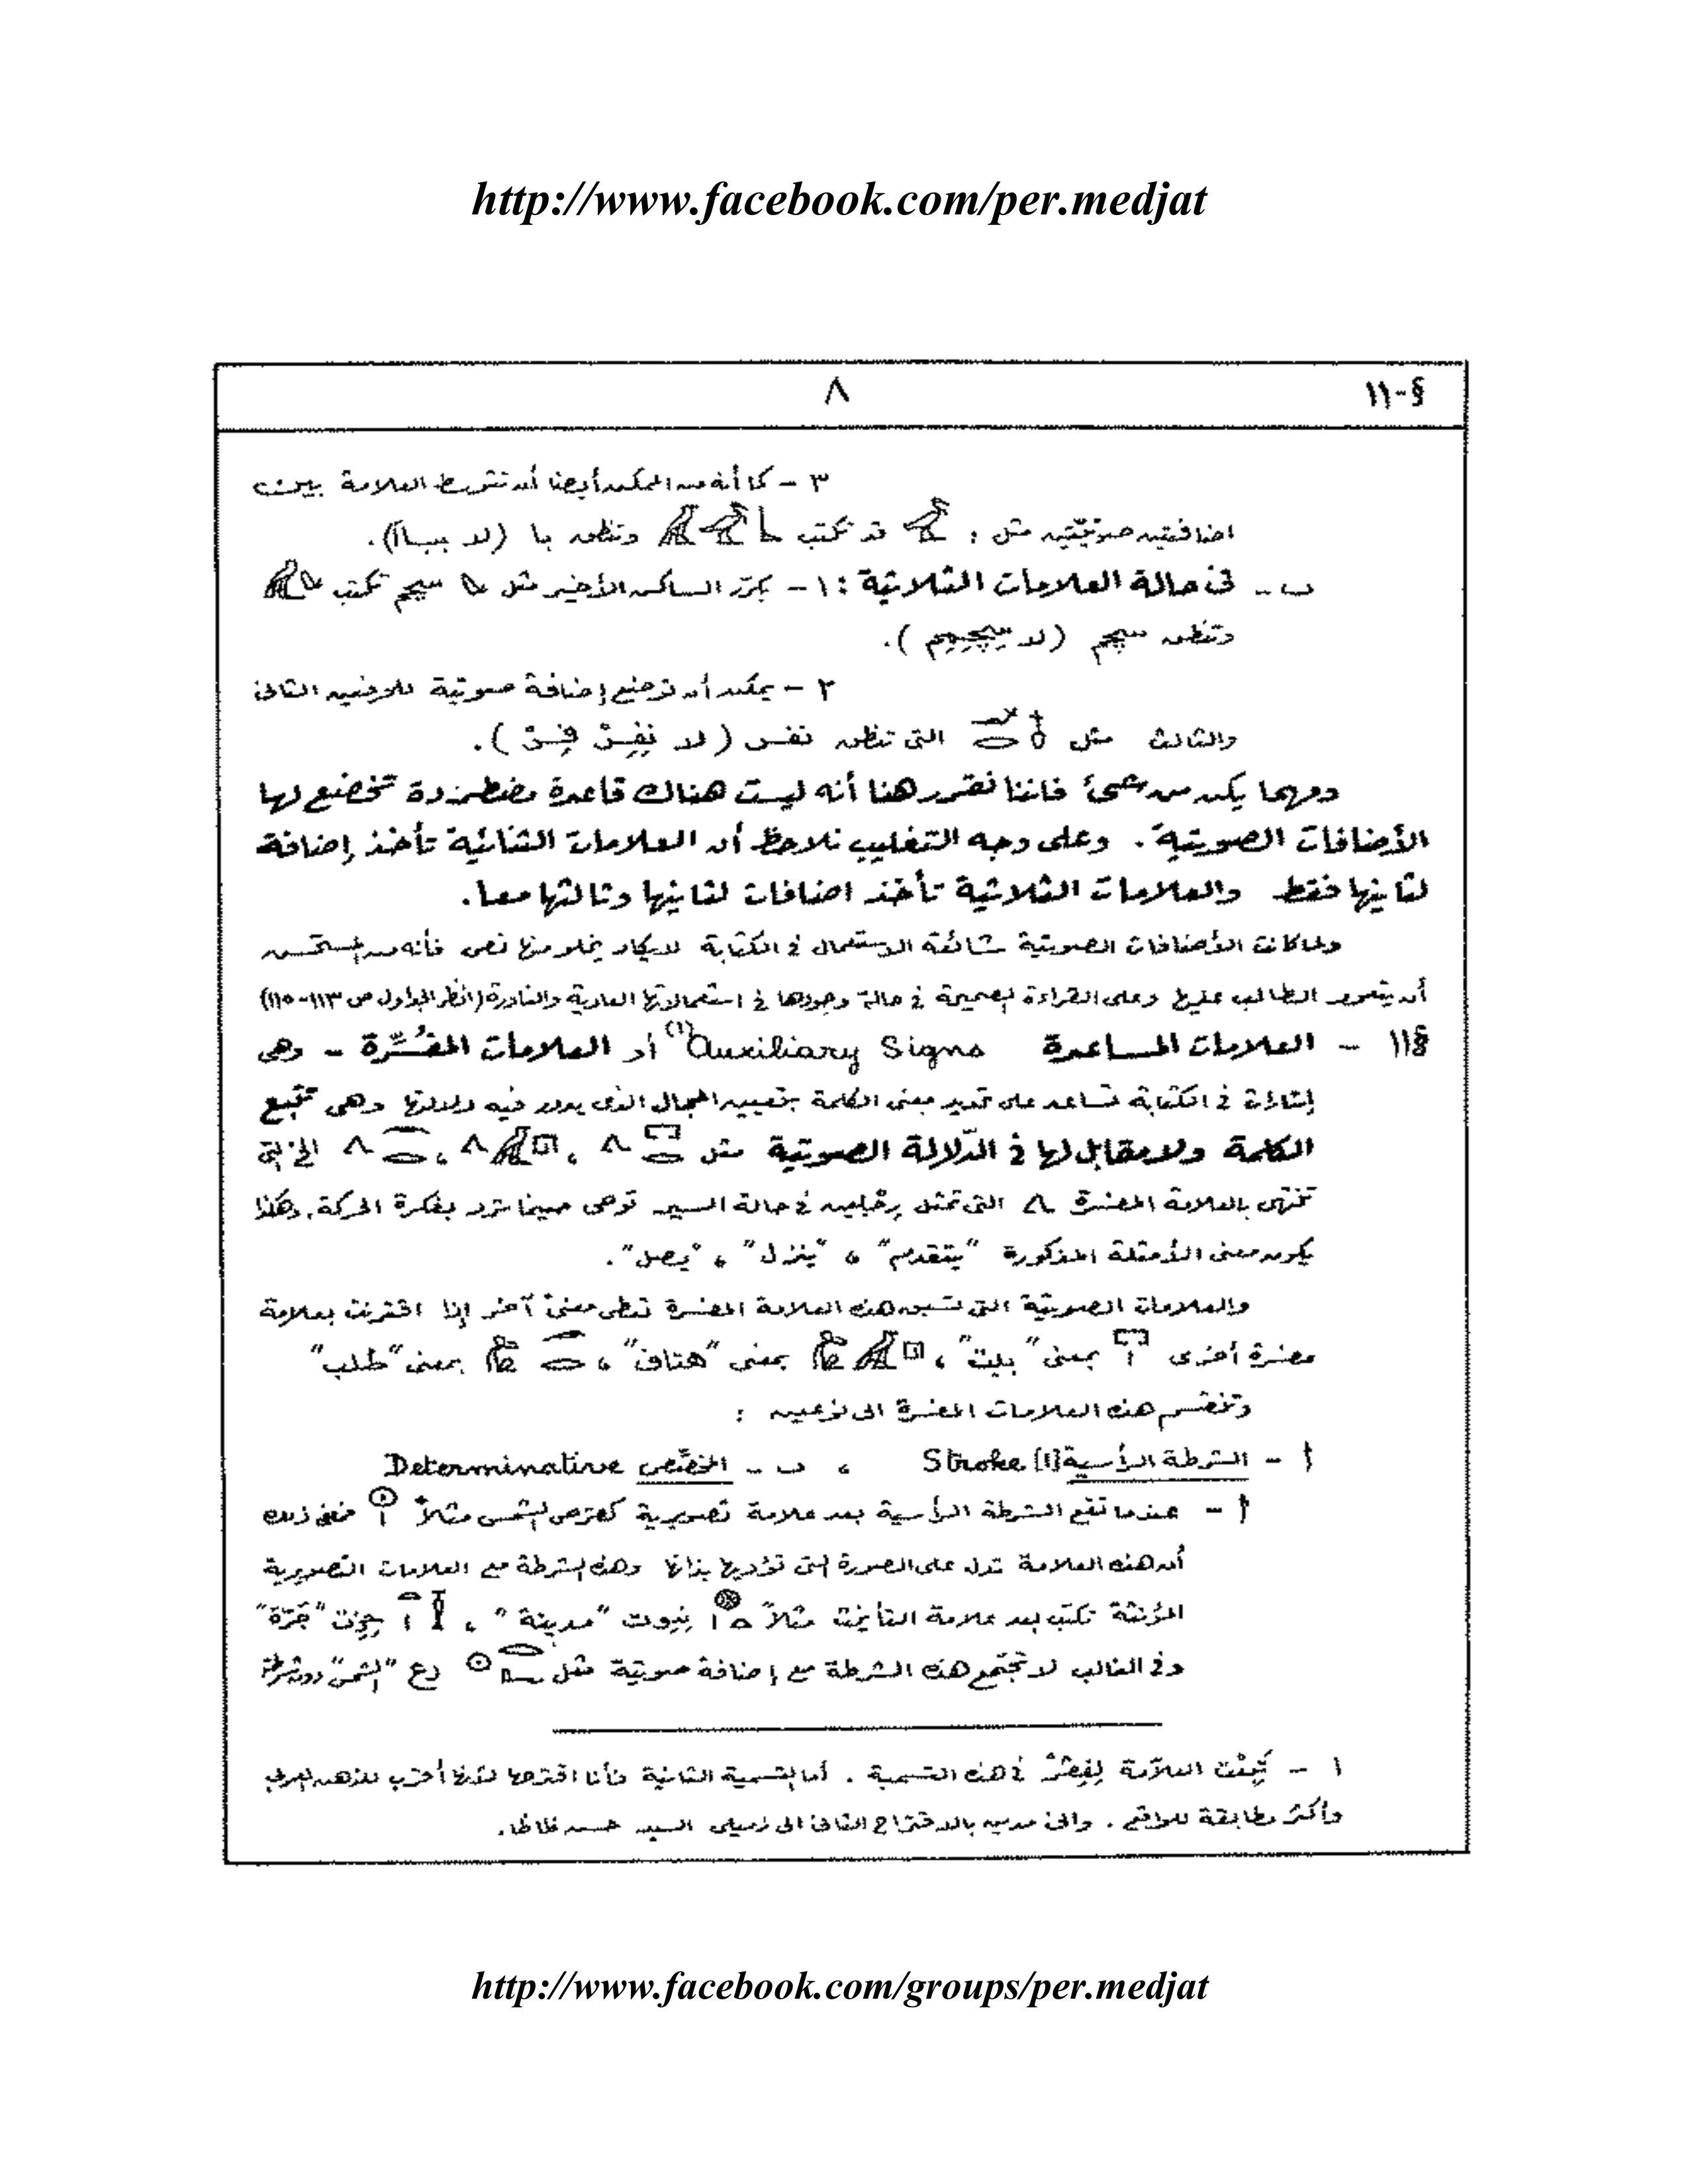 http://www.facebook.com/per.medjat
§-١١
٨
٣ - كما أنه من الممكن أيضا أن تتوسط العلامة بين
اضافتين صوتيتين مثل : قد تكتب وتنطق با (لا ببـاا).
ب - فى حالة العلامات الثلاثية : ١ - يكرر الساكن الأخير مثل سچم تكتب
وتنطق سچم (لا ).
٢ - يمكن أن توضع إضافة صوتية للحرفين الثانى
والثالث مثل التى تنطق نفر (لا نِفِرْ فِرْ).
ومهما يكن من شىء فاننا نقرر هنا أنه ليست هناك قاعدة مضطردة تخضع لها
الأضافات الصوتية . وعلى وجه التغليب نلاحظ أن العلامات الثنائية تأخذ إضافة
لثانيها فقط والعلامات الثلاثية تأخذ اضافات لثانيها وثالثها معا.
ولما كانت الأضافات الصوتية شائعة الاستعمال فى الكتابة لايكاد يخلو منها نص فأنه من المستحسن
أن يتعود الطالب عليها وعلى القراءة الصحيحة فى حالة وجودها فى استعمالاتها العادية والنادرة (انظر الجداول ص ١١٣-١١٥)
§١١ - العلامات المساعدة Auxiliary Signs (١) أو العلامات المفسِّرة - وهى
إشارات فى الكتابة تساعد على تحديد معنى الكلمة بتعيين المجال الذى يدور فيه مدلولها وهى تتبع
الكلمة ولا مقابل لها فى الدّلالة الصوتية مثل ، ، الخ التى
تنتهى بالعلامة المفسرة التى تمثل رجلين فى حالة السير توحى حيثما ترد بفكرة الحركة، وهكذا
يكون معنى الأمثلة المذكورة "يتقدم" ، "ينزل" ، "يصل".
والعلامات الصوتية التى تسبق هذه العلامة المفسرة تعطى معنىً آخر إذا اقترنت بعلامة
مفسرة أخرى بمعنى "بيت" ، بمعنى "هتاف" ، بمعنى "طلب"
وتنقسم هذه العلامات المفسرة الى نوعين :
أ - الشرطة الرأسية [١] Stroke ، ب - المخصِّص Determinative
أ - عندما تقع الشرطة الرأسية بعد علامة تصويرية كقرص الشمس مثلاً فمعنى ذلك
أن هذه العلامة تدل على الصورة التى تؤديها بذاتها وهذه الشرطة مع العلامات التصويرية
المؤنثة تكتب بعد علامة التأنيث مثلاً نيوت "مدينة" ، "جَرّة"
وفى الغالب لا تجتمع هذه الشرطة مع إضافة صوتية مثل رع "الشمس" دون شرطة
١ - العلاّمة فى هذه التسمية . أما التسمية الثانية فأنا اقترحها لأنها أقرب للذهن العربى
وأكثر مطابقة للواقع . وانى مدين بالاقتراح الثانى الى زميلى السيد حسن ظاظا.
http://www.facebook.com/groups/per.medjat